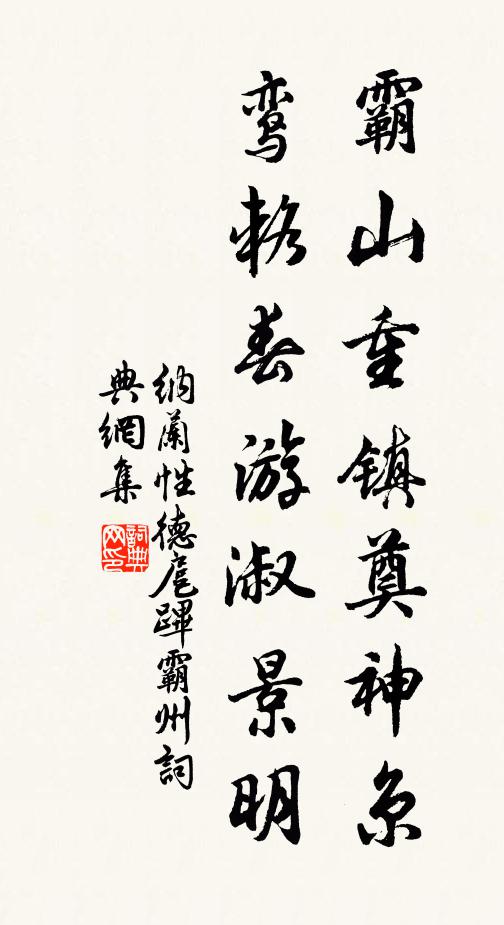 霸山重镇奠神京
鸾辂春游淑景明
納蘭性德扈蹕霸州詞
典網集
詞典网印